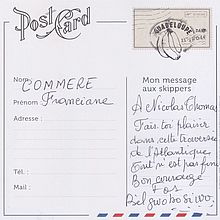 Post Card
GUADELOUPE
Nom: COMMERE
Prénom: Franciane
Adresse :
Tél. :
Mail :
Mon message
aux skippers
A Nicolas Thomas
Fais toi plaisir
dans cette traversée
de l'Atlantique
tout n'est pas fini
Bon courage
Bel gwo bo si wo